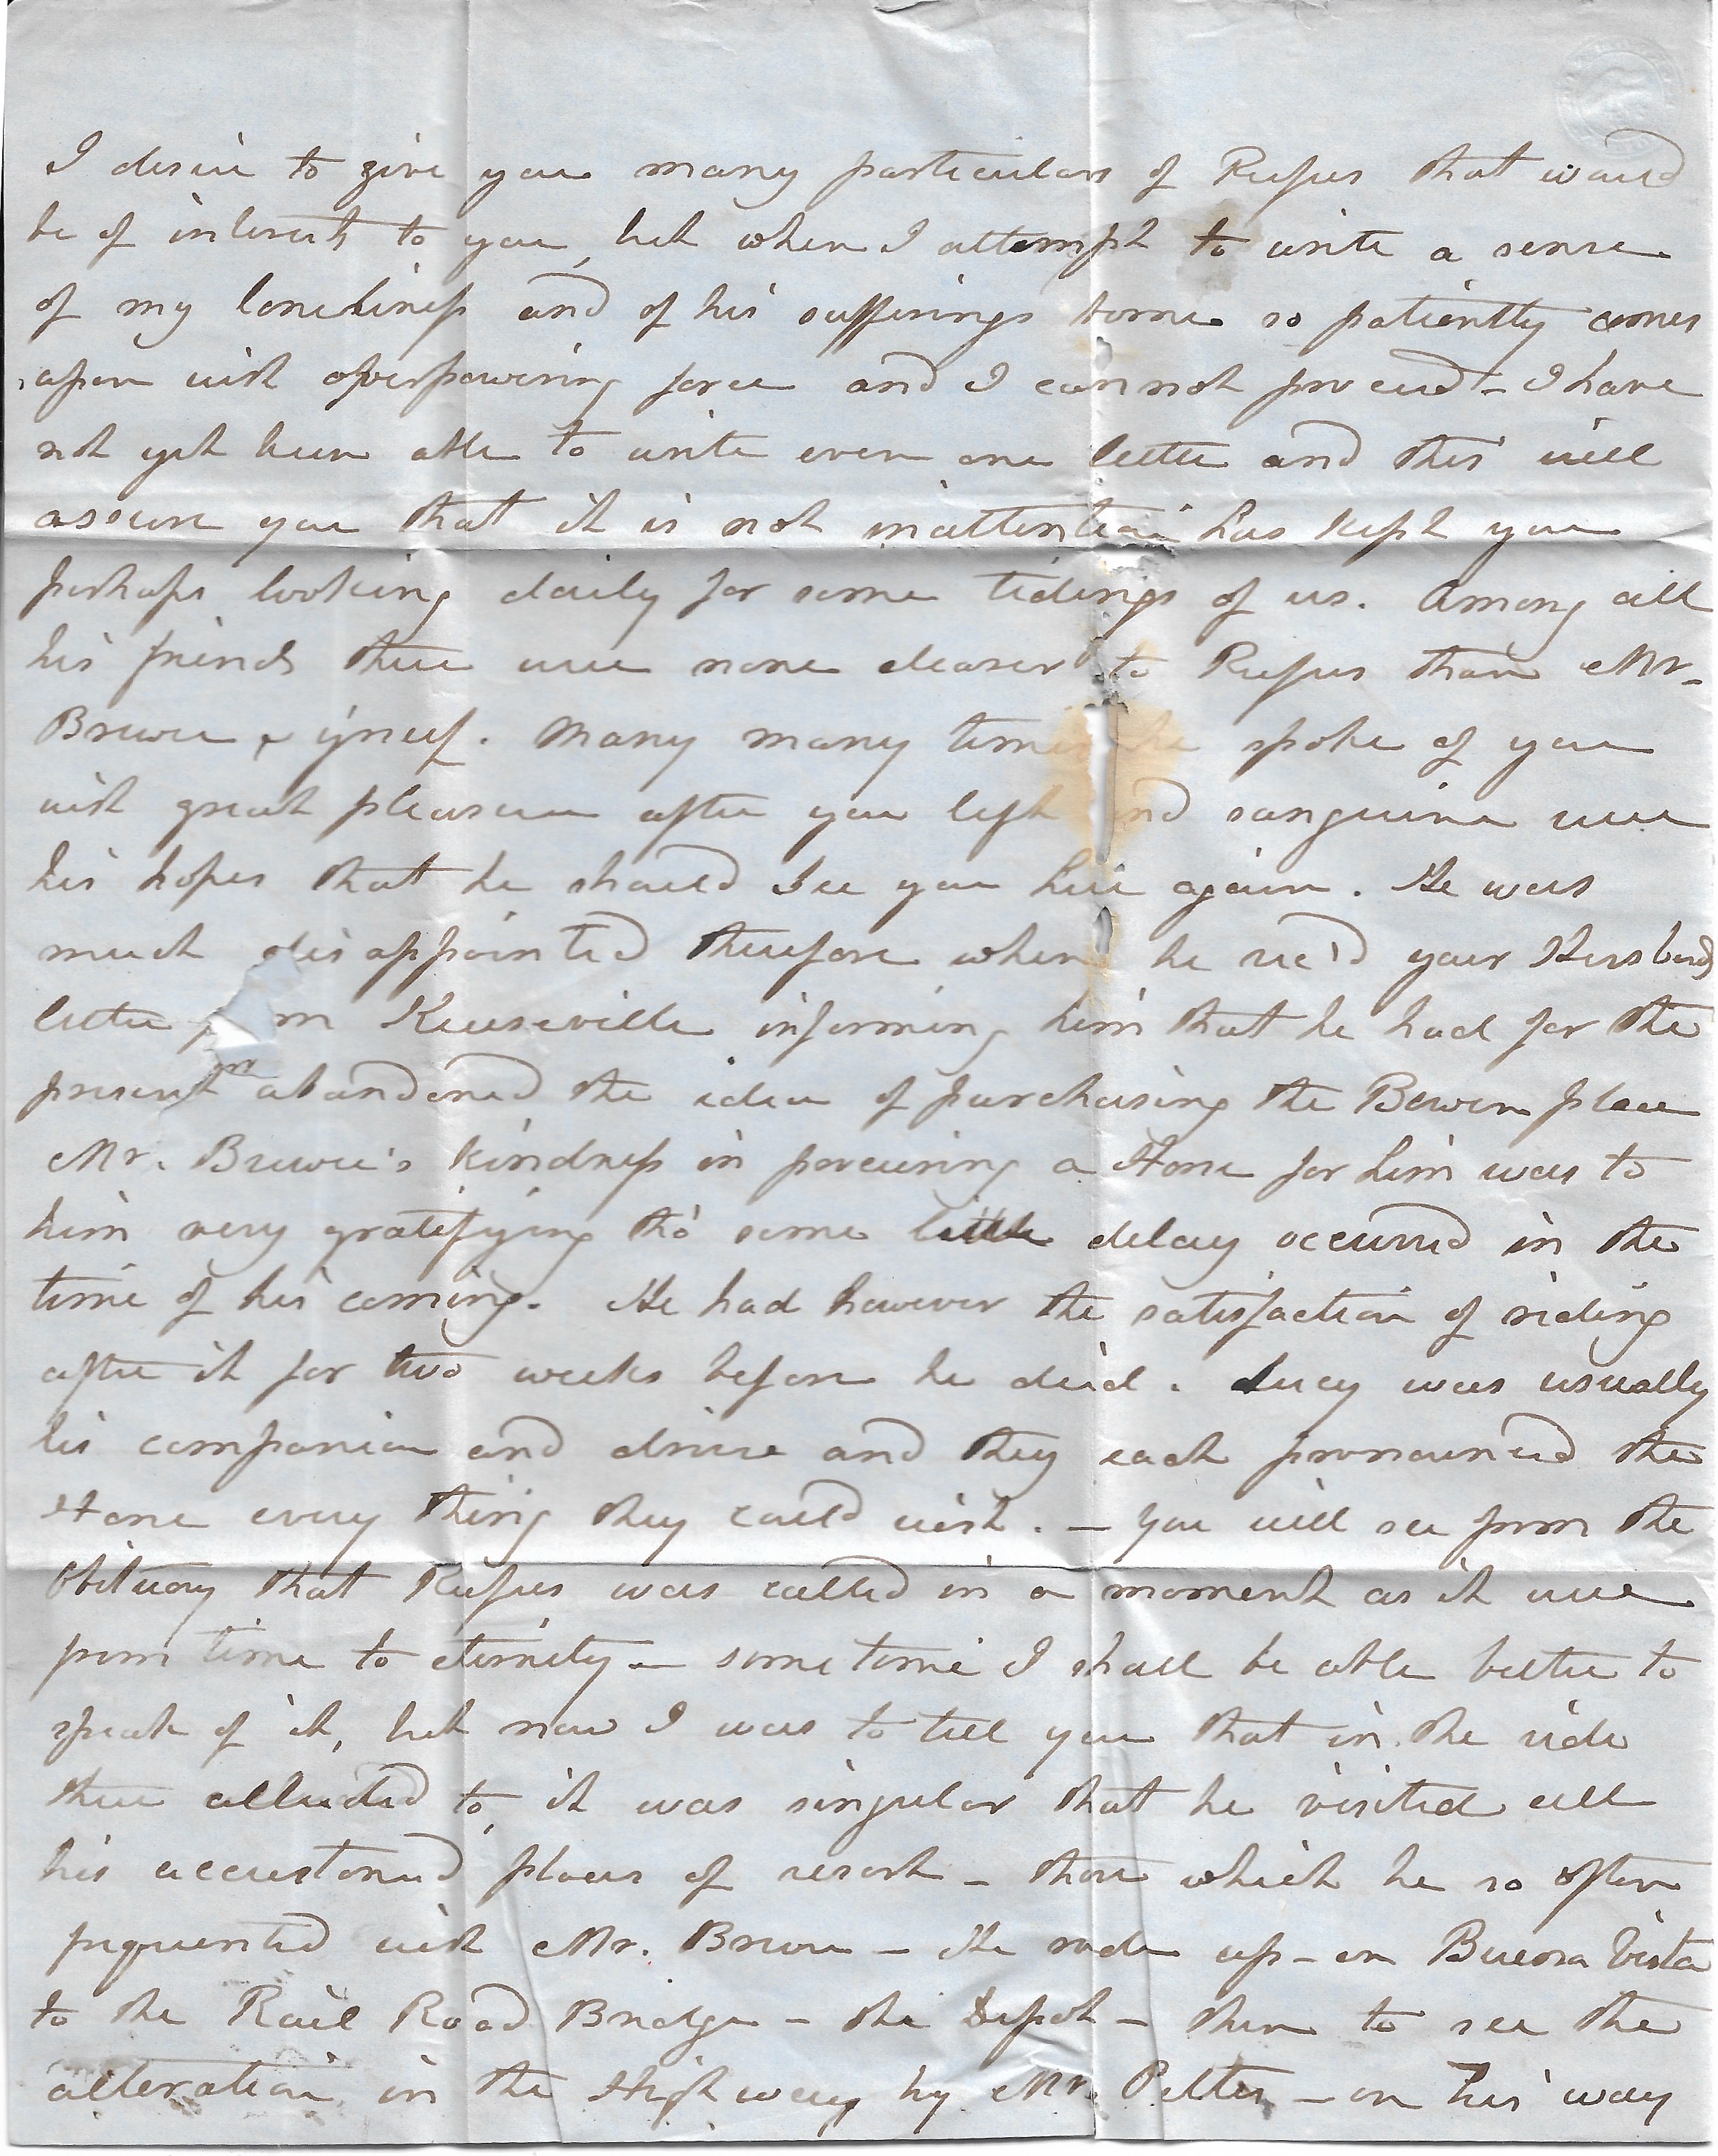 I desire to give you many particulars of Rufus that would
be of interest to you, but when I attempt to write a sense
of my loneliness and of his sufferings borne so patiently comes
upon with overpowering force and I cannot proceed - I have
not yet been able to write even one letter and this will
assure you that it is not inattention has kept you
perhaps looking daily for some tidings of us. Among all
his friends there were none dearer to Rufus than Mr.
Brewer & yrself. Many many times he spoke of you
with great pleasure after you left and sanguine were
his hopes that he should see you here again. He was
much disappointed therefore when he rec'd your Husbands
letter from Keeseville informing him that he had for the
present abandoned the idea of purchasing the Bowen place
Mr. Brewer's kindness in procuring a Horse for him was to
him very gratifying tho' some little delay occurred in the
time of his coming. He had however the satisfaction of riding
after it for two weeks before he died. Lucy was usually
his companion and driver and they each pronounced the
Horse every thing they could wish. - You will see from the
Obituary that Rufus was called in a moment as it were
from time to eternity - some time I shall be able better to
speak of it, but now I was to tell you that in the ride
there alluded to, it was singular that he visited all
his accustomed places of resort - those which he so often
frequented with Mr. Brewer - He rode up - on Buena Vista
to the Rail Road Bridge - the Depot - then to see the
alteration in the Highway by Mr. - on his way